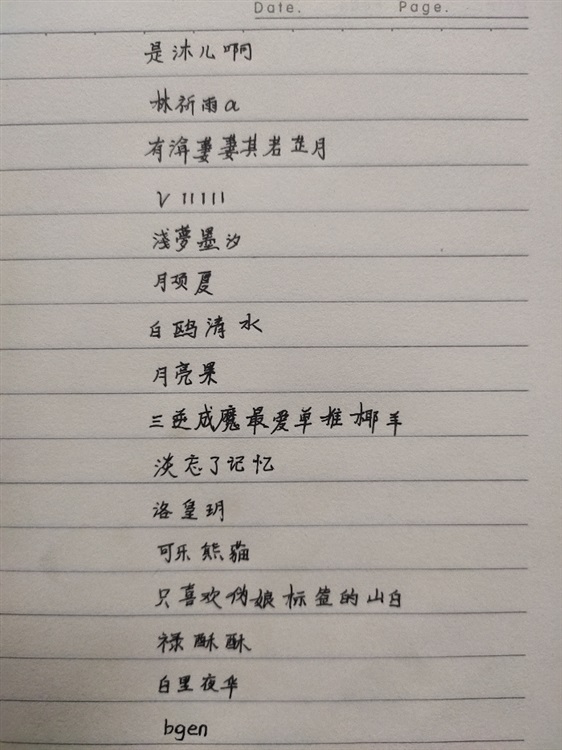 Date. Page.
是沐儿啊
林祈雨a
有渰萋萋其若芷月
V 11111
淺夢墨汐
月顷夏
白鸥清水
月亮果
三逆成魔最爱单推椰羊
淡忘了记忆
洛皇玥
可乐熊貓
只喜欢伪娘标签的山白
禄酥酥
白里夜华
bgen